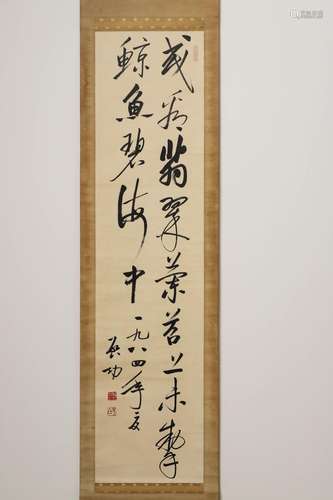 或看翡翠蘭苕上未掣
鯨魚碧海中一九八四年夏
啟功